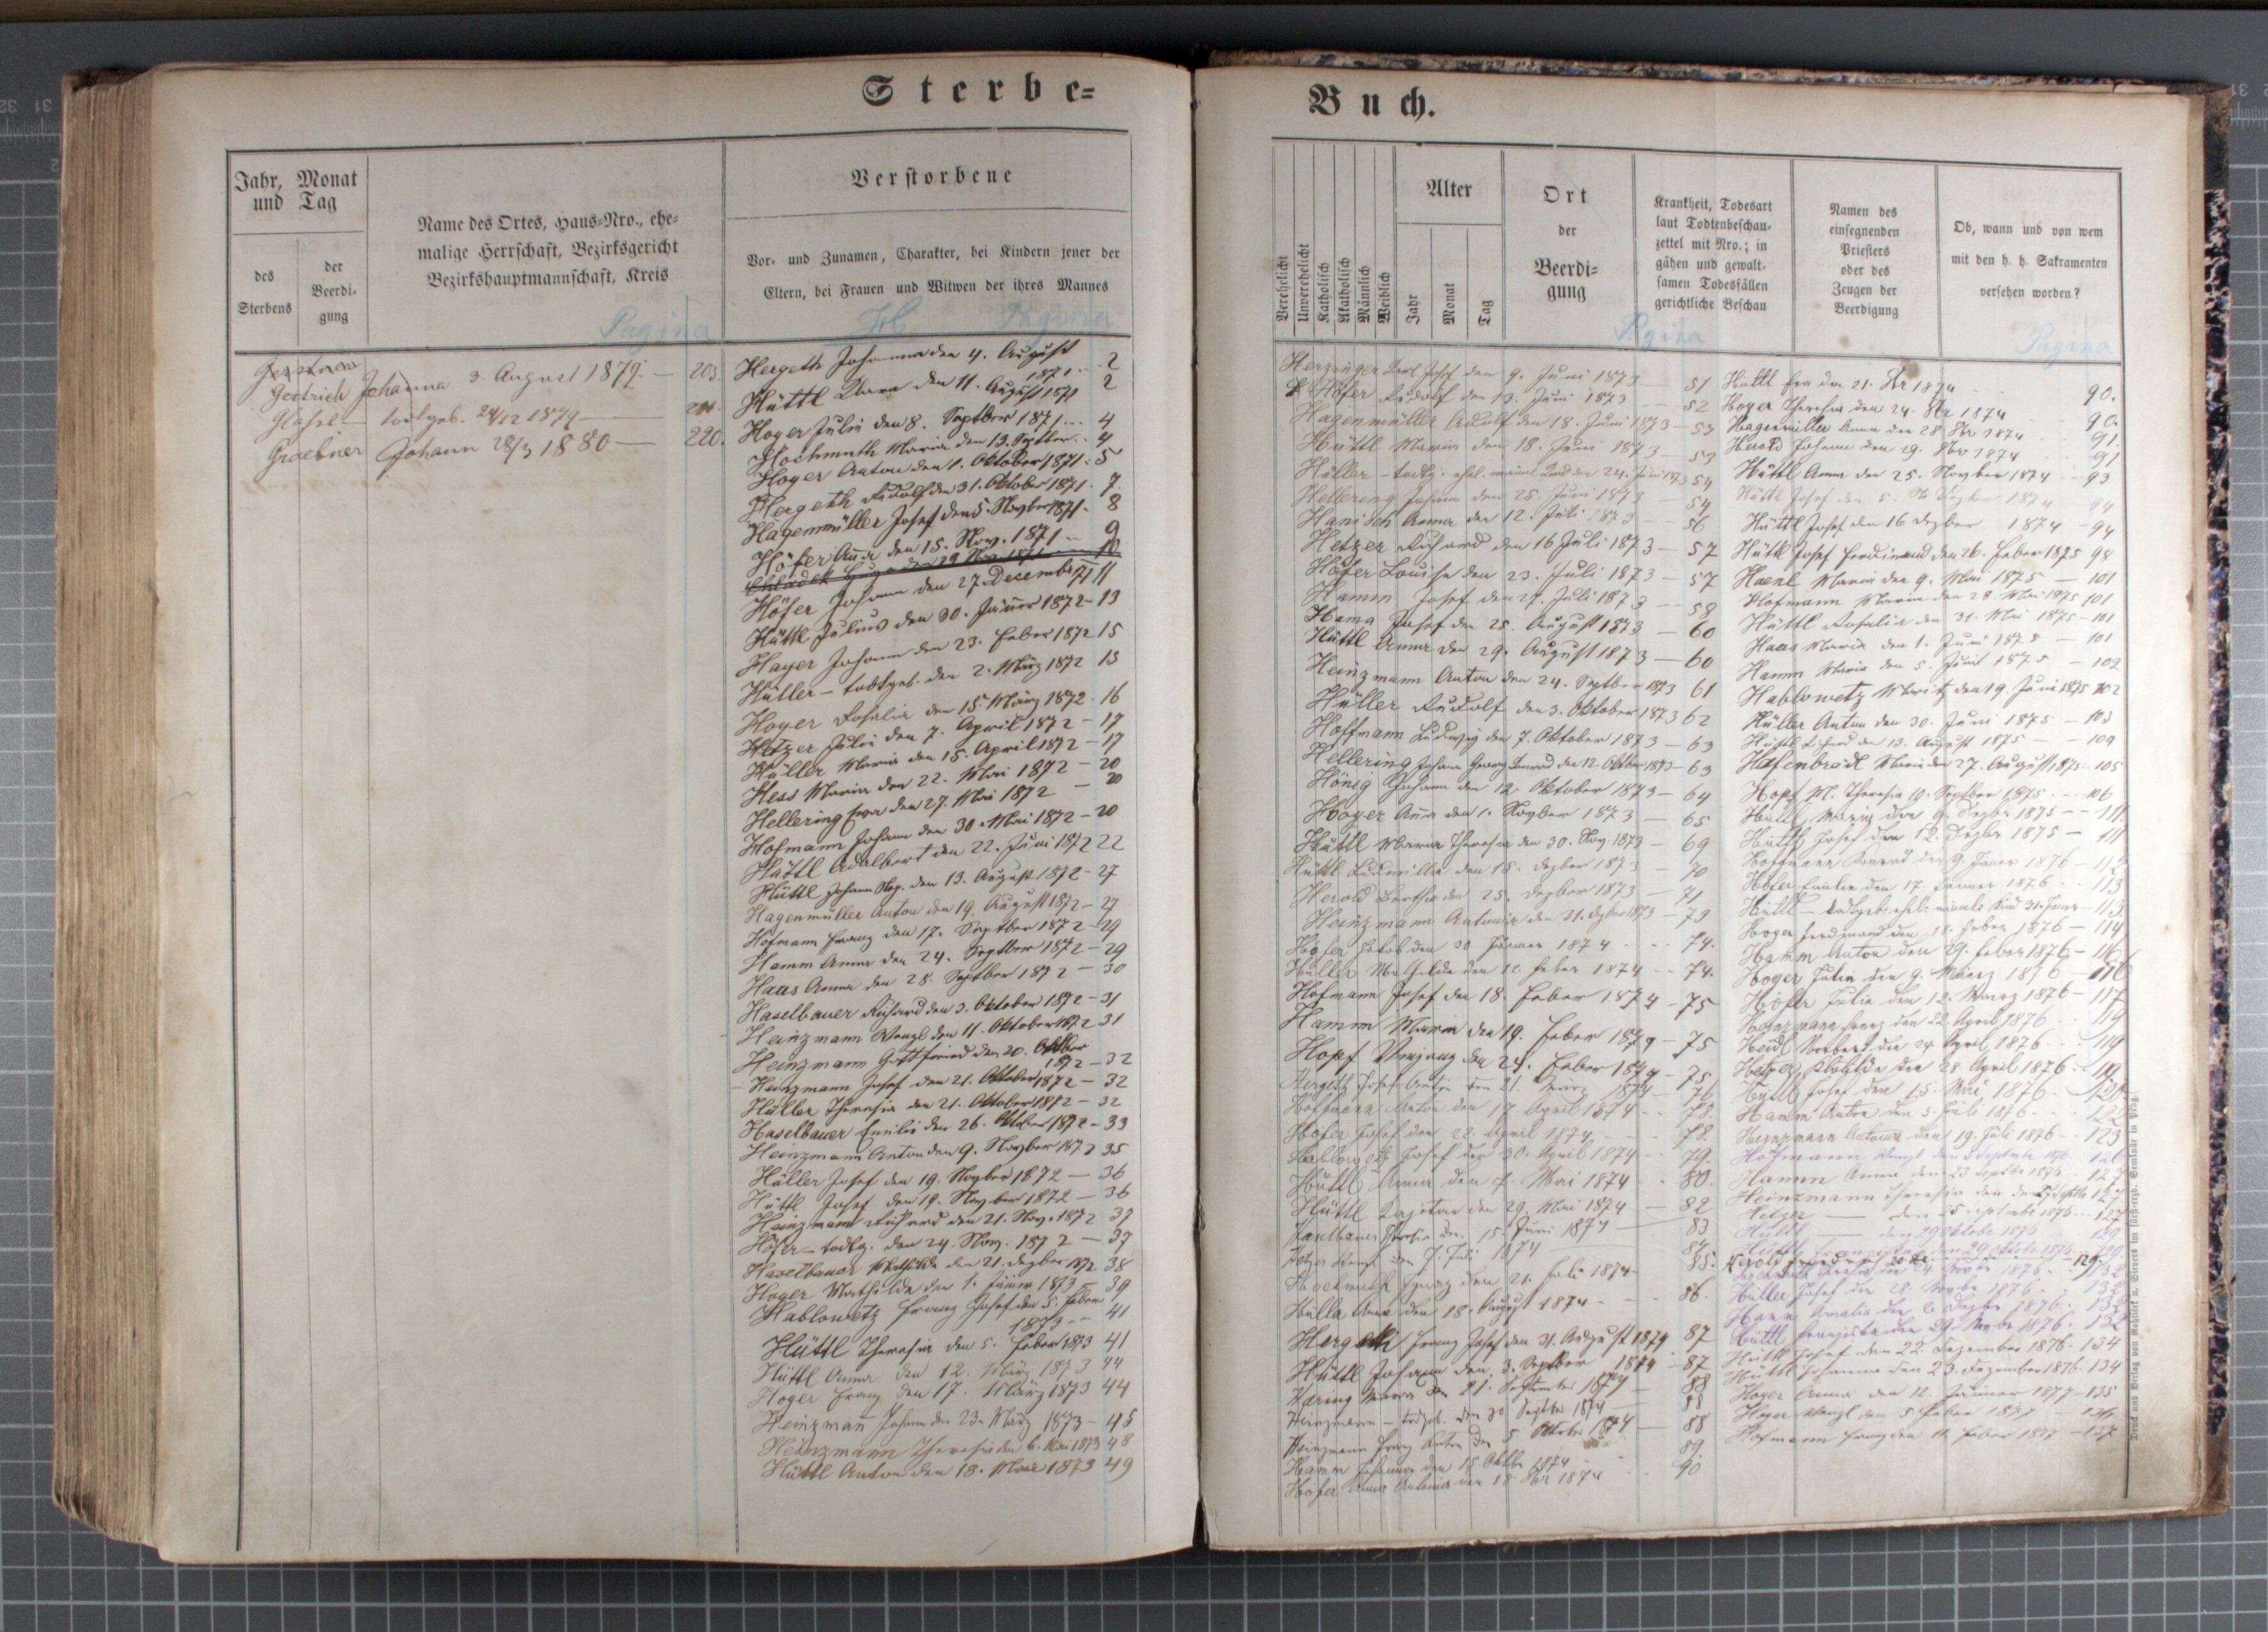 Sterbe=
Jahr, Monat
und Tag
des
Sterbens
der
Beerdi-
gung
Name des Ortes, Haus=Nro., ehe=
malige Herrschaft, Bezirksgericht
Bezirkshauptmannschaft, Kreis
Verstorbene
Vor- und Zunamen, Charakter, bei Kindern jener der
Eltern, bei Frauen und Witwen der ihres Mannes
Pagina
H Pagina
Gertrich Johanna 3. August 1879. — 203.
todtgeb. 24/12 1879 —
Graebner Johann 28/3 1880 — 220.
Hergeth Johanna den 4. August
1871 .. 2
Hüttl Clara den 11. August 1871 2
Hoyer Julie den 8. Septber 1871 ... 4
Hochmuth Maria den 13. Septber .. 4
Hoyer Anton den 1. Oktober 1871 . 5
Hergeth Rudolf den 31. Oktober 1871 . 7
Hagenmüller Josef den 5. Novber 1871 . 8
Höfer Anna den 15. Nov. 1871 — 9
10
Höfer Johann den 27. December 71 11
Hüttl Julius den 30. Jänner 1872 - 13
Hayer Johann den 23. Feber 1872 15
Hüller — todtgeb. den 2. März 1872 15
Hoyer Rosalia den 15. März 1872 . 16
Hetzer Julie den 7. April 1872 — 17
Hüller Maria den 15. April 1872 — 17
Hess Maria den 22. Mai 1872 — 20
Hellering Eva den 27. Mai 1872 — 20
Hofmann Johann den 30. Mai 1872 — 20
Hüttl Adalbert den 22. Juni 1872 22
Hüttl Johann Nep. den 13. August 1872 - 27
Hagenmüller Anton den 19. August 1872 — 27
Hofmann Franz den 17. Septber 1872 — 29
Hamm Anna den 24. Septber 1872 — 29
Haas Anna den 28. Septber 1872 — 30
Haselbauer Richard den 3. Oktober 1872 — 31
Heinzmann Wenzl den 11. Oktober 1872 31
Heinzmann Gottfried den 20. Oktber
1872 — 32
Heinzmann Josef den 21. Oktober 1872 — 32
Hüller Theresia den 21. Oktober 1872 — 32
Haselbauer Emilie den 26. Oktober 1872 — 33
Heinzmann Anton den 9. Novber 1872 35
Hüller Josef den 19. Novber 1872 — 36
Hüttl Josef den 19. Novber 1872 — 36
Heinzmann Richard den 21. Nov. 1872 37
Höfer — todtg. den 24. Nov. 1872 — 37
Haselbauer Mathilde den 21. Dezber 1872 38
Hoyer Mathilde den 1. Jänner 1873 — 39
Hablowetz Franz Josef den 5. Feber
1873 — 41
Hüttl Theresia den 5. Feber 1873 41
Hüttl Anna den 12. März 1873 44
Hoyer Franz den 17. März 1873 44
Heinzmann Johann den 23. März 1873 — 45
Heinzmann Theresia den 6. Mai 1873 48
Hüttl Anton den 18. Mai 1873 49
Buch.
Verehelicht
Unverehelicht
Katholisch
Akatholisch
Männlich
Weiblich
Alter
Jahr
Monat
Tag
Ort
der
Beerdi=
gung
Krankheit, Todesart
laut Todtenbeschau-
zettel mit Nro.; in
gähen und gewalt-
samen Todesfällen
gerichtliche Beschau
Namen des
einsegnenden
Priesters
oder des
Zeugen der
Beerdigung
Ob, wann und von wem
mit den h. h. Sakramenten
versehen worden?
Pagina
Pagina
Herzinger Josef den 9. Juni 1873 — 51
Höfer Rudolf den 13. Juni 1873 — 52
Hagenmüller Adolf den 18. Juni 1873 — 53
Hüttl Maria den 18. Juni 1873 — 53
Hüller — todtg. den 24. Juni 1873 54
Hellering Johann den 25. Juni 1873 — 54
Hanisch Anna den 12. Juli 1873 — 56
Hetzer Richard den 16 Juli 1873 — 57
Höfer Louise den 23. Juli 1873 — 57
Hamm Josef den 27. Juli 1873 — 58
Hama Josef den 25. August 1873 — 60
Hüttl Anna den 29. August 1873 — 60
Heinzmann Anton den 24. Septber 1873 61
Hüller Rudolf den 3. Oktober 1873 62
Hoffmann Ludwig den 7. Oktober 1873 — 63
Hellering Johann Georg Konrad den 12. Oktber 1873 — 63
Hönig Johann den 12. Oktober 1873 — 64
Hoyer Anna den 1. Novber 1873 — 65
Hüttl Maria Theresia den 30. Nov. 1873 — 69
Hüttl Ludmilla den 18. Dezber 1873 — 70
Herold Bertha den 25. Dezber 1873 — 71
Heinzmann Antonia den 31. Dezber 1873 — 73
Höfer Jakob den 30 Jänner 1874 - - 74.
Hüller Mathilde den 12. Feber 1874 - - 74.
Hofmann Josef den 18. Feber 1874 — 75
Hamm Maria den 19. Feber 1874 — 75
Hopf Vinzenz den 24. Feber 1874 — 75
Hergeth Josef Anton den 21. März 1874 — 76
Hoffmann Anton den 17. April 1874 - - 78.
Höfer Josef den 22. April 1874 - - 78.
Hablowetz Josef den 30. April 1874 — 79.
Hüttl Anna den 7. Mai 1874 - 80.
Hüttl Kajetan den 29. Mai 1874 — 82
Haselbauer den 15. Juni 1874 — 83
den 7. Juli 1874
Ignaz den 21. Juli 1874 85.
Hülla Anna den 18. August 1874 - - 86.
Hergeth Franz Josef den 31. August 1874 87
Hüttl Johann den 3. Septber 1874 - 87
Häring Maria den 21. September 1874 — 88
Heinzmann — todtgeb. den 30 Septbr 1874 — 88
Heinzmann Franz Anton den 5. Oktober 1874 — 88
Hamm Johanna den 15 Oktbr 1874 89
Höfer Anna Antonia den 18 8br 1874 - - 90
Hüttl Eva den 21. 8br 1874 - 90.
Hoyer Theresia den 24. 8br 1874 90.
Hagenmüller Anna den 28. 8br 1874 91.
Herold Johann den 29. 8br 1874 91
Hüttl Anna den 25. Novber 1874 - 93
Hüttl Josef den 5. Dezber 1874 — 94
Hüttl Josef den 16 Dezber 1874 — 94
Hüttl Josef Ferdinand den 26. Feber 1875 98
Haenl Maria den 9. Mai 1875 — 101
Hofmann Maria den 28. Mai 1875 101
Hüttl Rosalia den 31. Mai 1875 — 101
Haas Maria den 1. Juni 1875 — 101
Hamm Maria den 5. Juni 1875 — 102
Hablowetz Moritz den 19. Juni 1875 102
Hüller Anton den 30. Juni 1875 — 103
Hüttl den 13. August 1875 — 104
Hafenbrädl Maria den 27. August 1875 - 105
Hopf M. Theresia 10. Septber 1875 - - 106
Hüttl Maria den 9. Dezbr 1875 — 111.
Hüttl Josef den 12. Dezbr 1875 — 111
Hofmann Konrad den 9. Jänner 1876 — 112
Höfer Emilie den 17. Jänner 1876 - - 113
Hüttl — todtgeb. ehel. Kind 31. Jänner — 113.
Hoyer Ferdinand den 18. Feber 1876 — 114
Hamm Anton den 29. Feber 1876 — 116
Hoyer Julie den 9. März 1876 — 116
Höfer Julie den 12. März 1876 — 117
Heinzmann Franz den 22. April 1876 - 119
Heidl Norbert den 24. April 1876 - - 119
Hetzer Klothilde den 28. April 1876 - 119
Hüttl Josef den 15. Mai 1876 -
Hamm Anton den 5. Juli 1876 - -
Heinzmann Antonia den 19. Juli 1876 - 123
Hofmann Wenzl den Septembr 1876 126
Hamm Anna den 23 Septbr 1876 127
Heinzmann Theresia den 127
Hetzer — den 25 Septembr 1876 .. 127
Hüttl — den 29 Oktober 1876 129
den 29 Oktober 1876 129
Herold 129.
Hüller Josef den 28. Novbr 1876
Hamm Amalia den 2. Dezbr 1876
Hüttl Franziska
Hüttl Josef den 22. Dezember 1876 - 134
Hüttl Johanna den 23. Dezember 1876 - 134
Hoyer Anna den 12. Jänner 1877 — 135
Hoyer Wenzl den 5. Feber 1877 — 136
Hofmann Franz den 11. Feber 1877 — 137